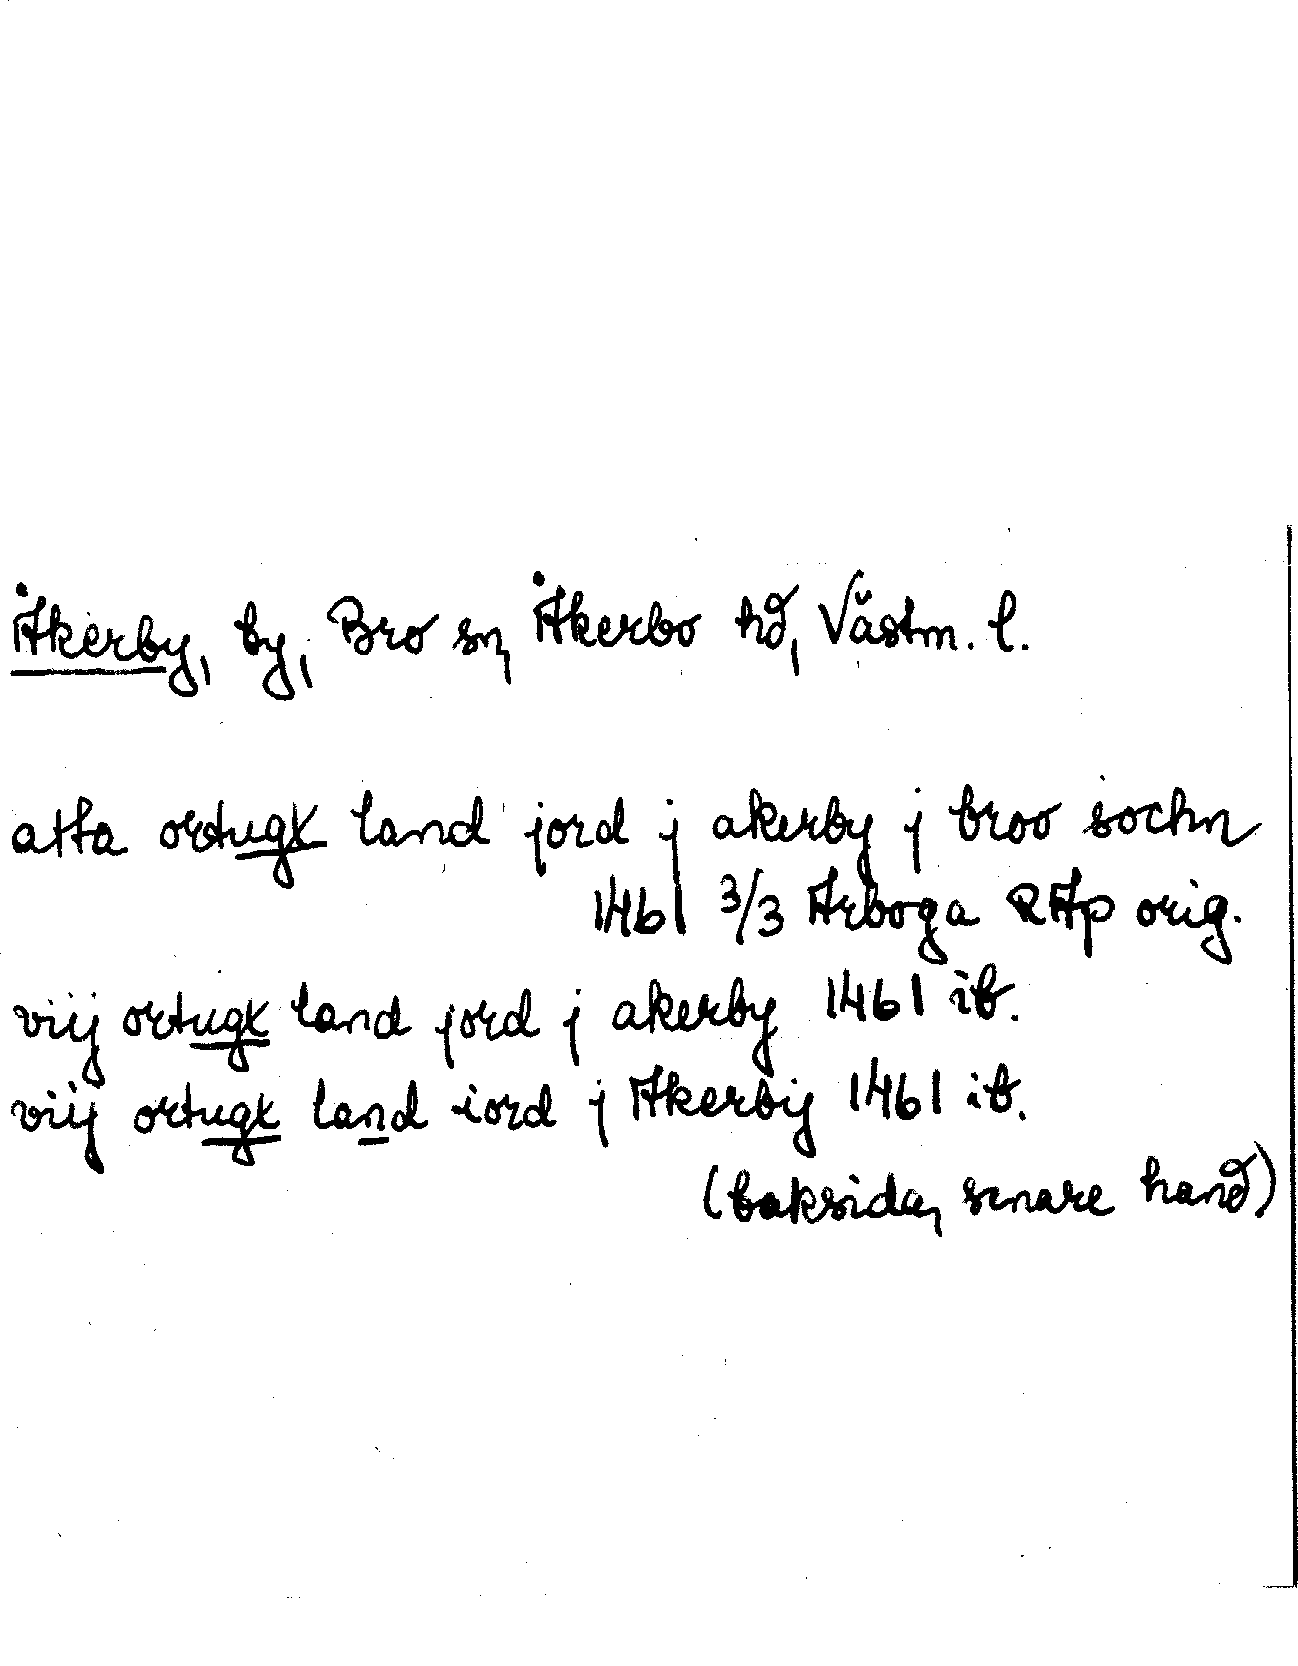 Åkerby, by, Bro sn, Åkerbo hd, Västm. l.
atta ortugx land jord j akerby j broo sochn
1461 3/3 Arboga RAp orig.
viij ortugx land jord j akerby 1461 ib.
viij ortugx land iord j Akerbij 1461 ib.
(baksida, senare hand)